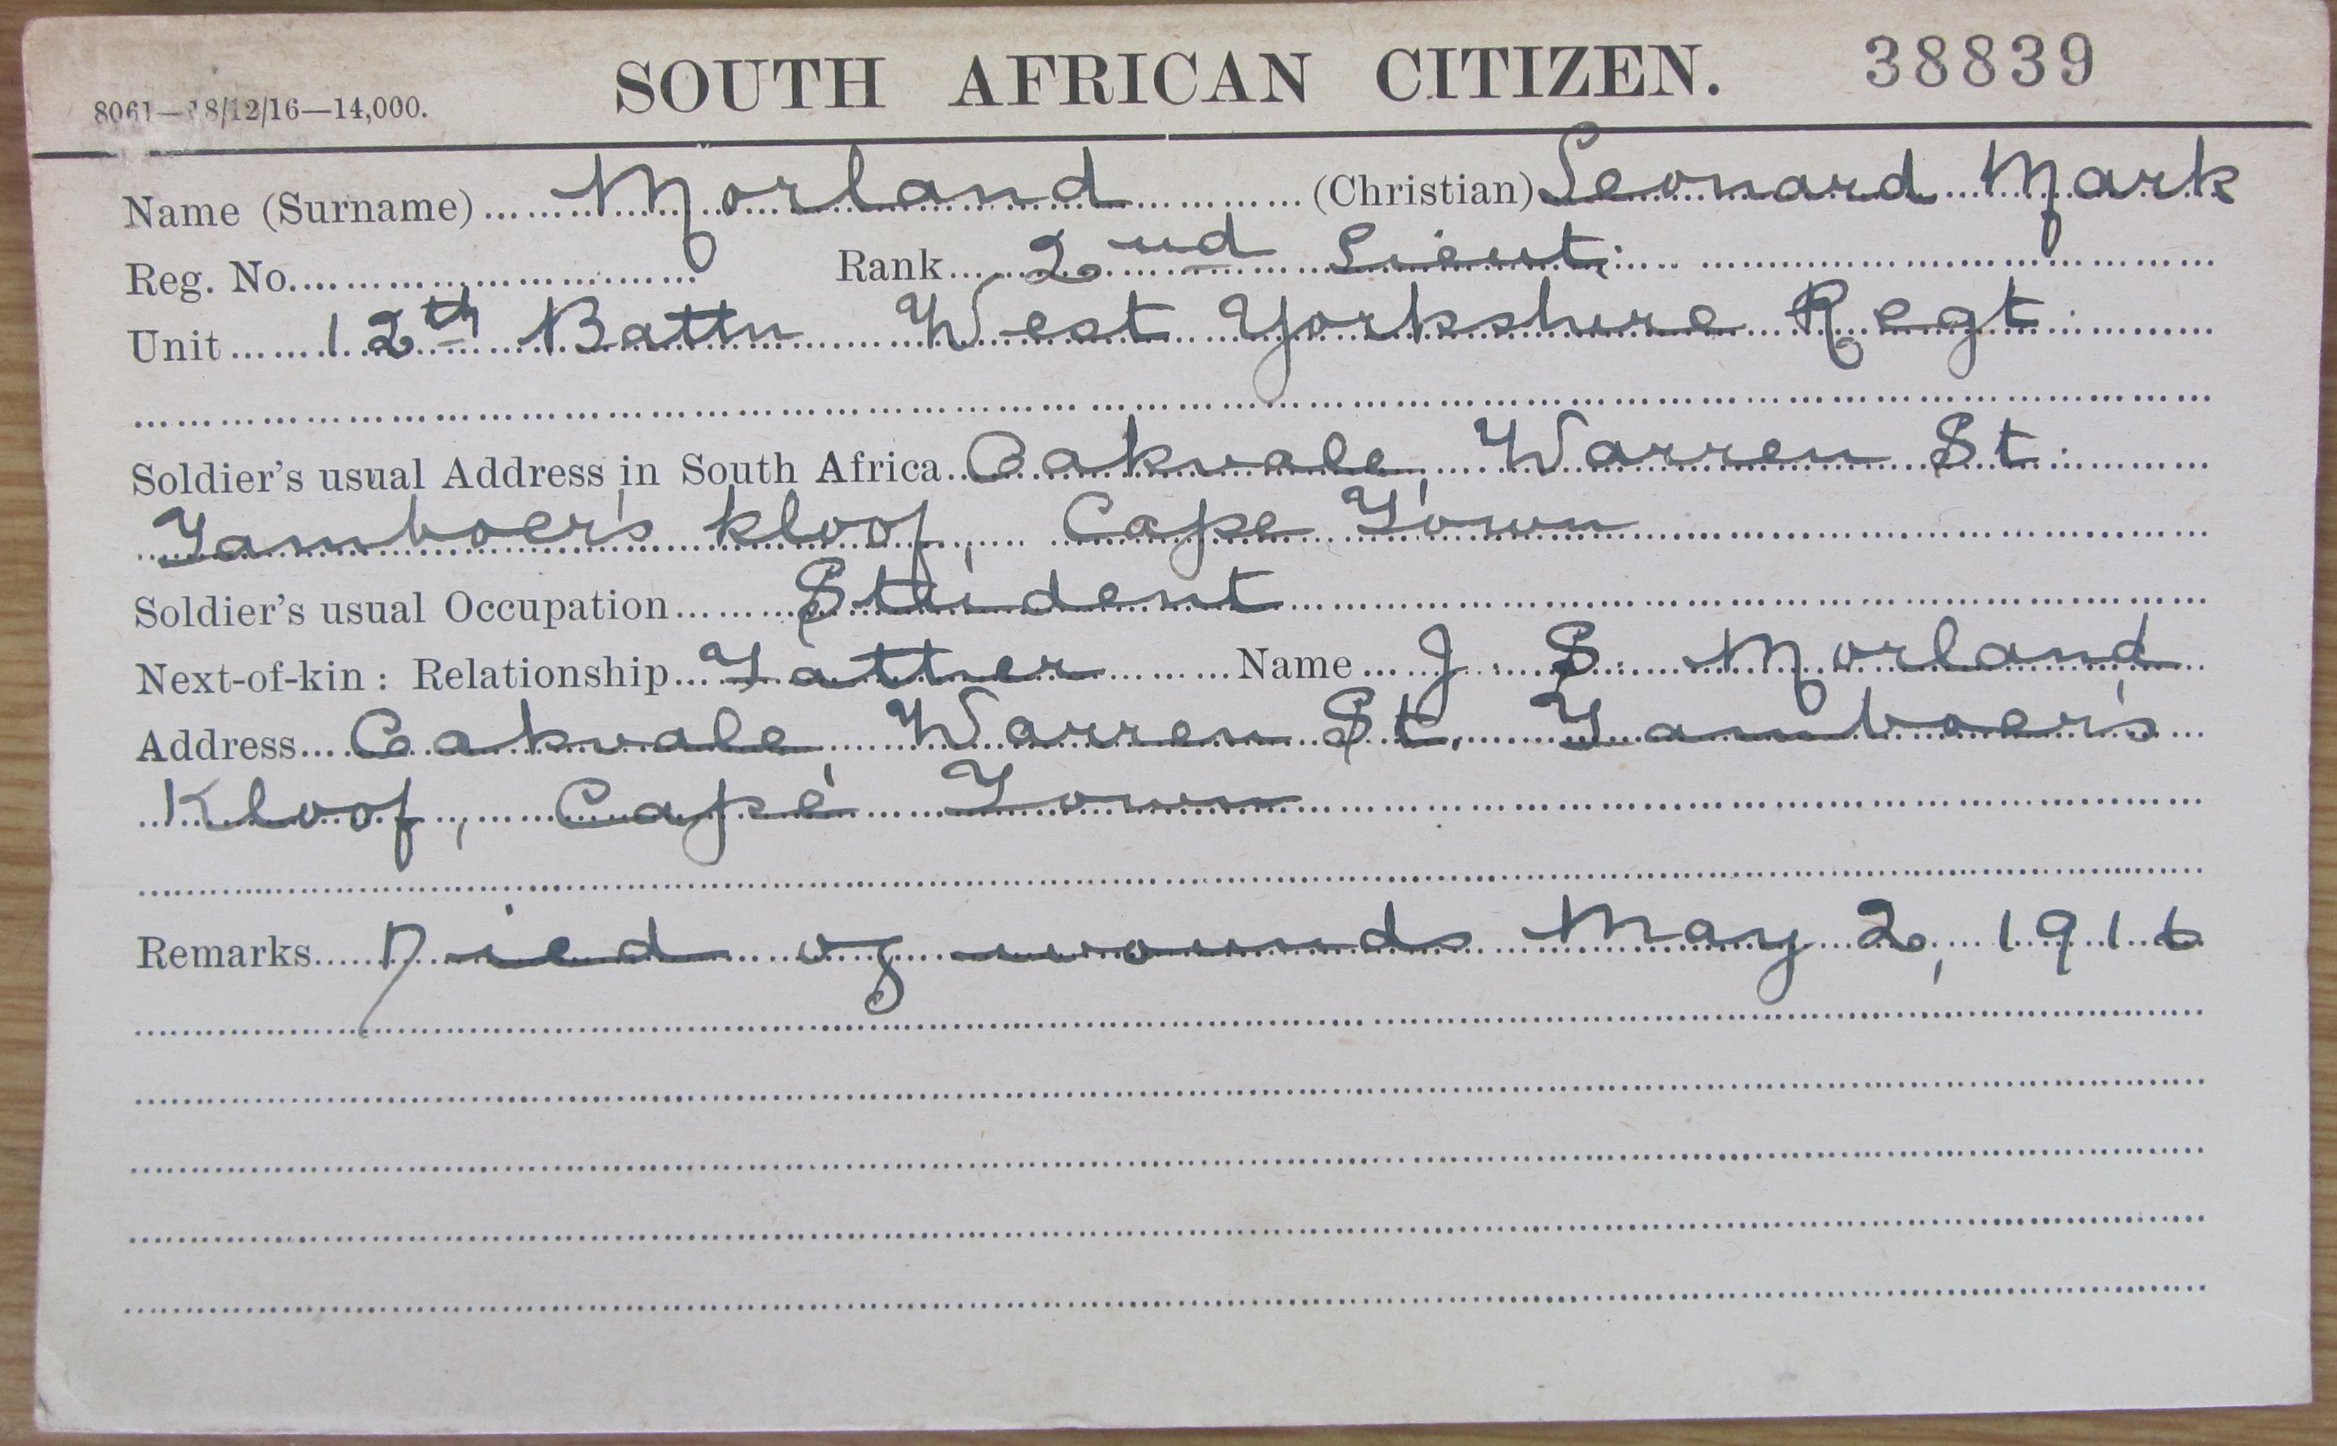 SOUTH AFRICAN CITIZEN. 38839
8061—18/12/16—14,000.
Name (Surname) Morland (Christian) Leonard Mark
Reg. No. Rank 2nd Lieut.
Unit 12th Battn West Yorkshire Regt.
Soldier's usual Address in South Africa Oakvale, Warren St.
Tamboer's kloof, Cape Town
Soldier's usual Occupation Student
Next-of-kin: Relationship Father Name J. S. Morland
Address Oakvale, Warren St. Tamboer's
Kloof, Cape Town
Remarks Died of wounds May 2, 1916